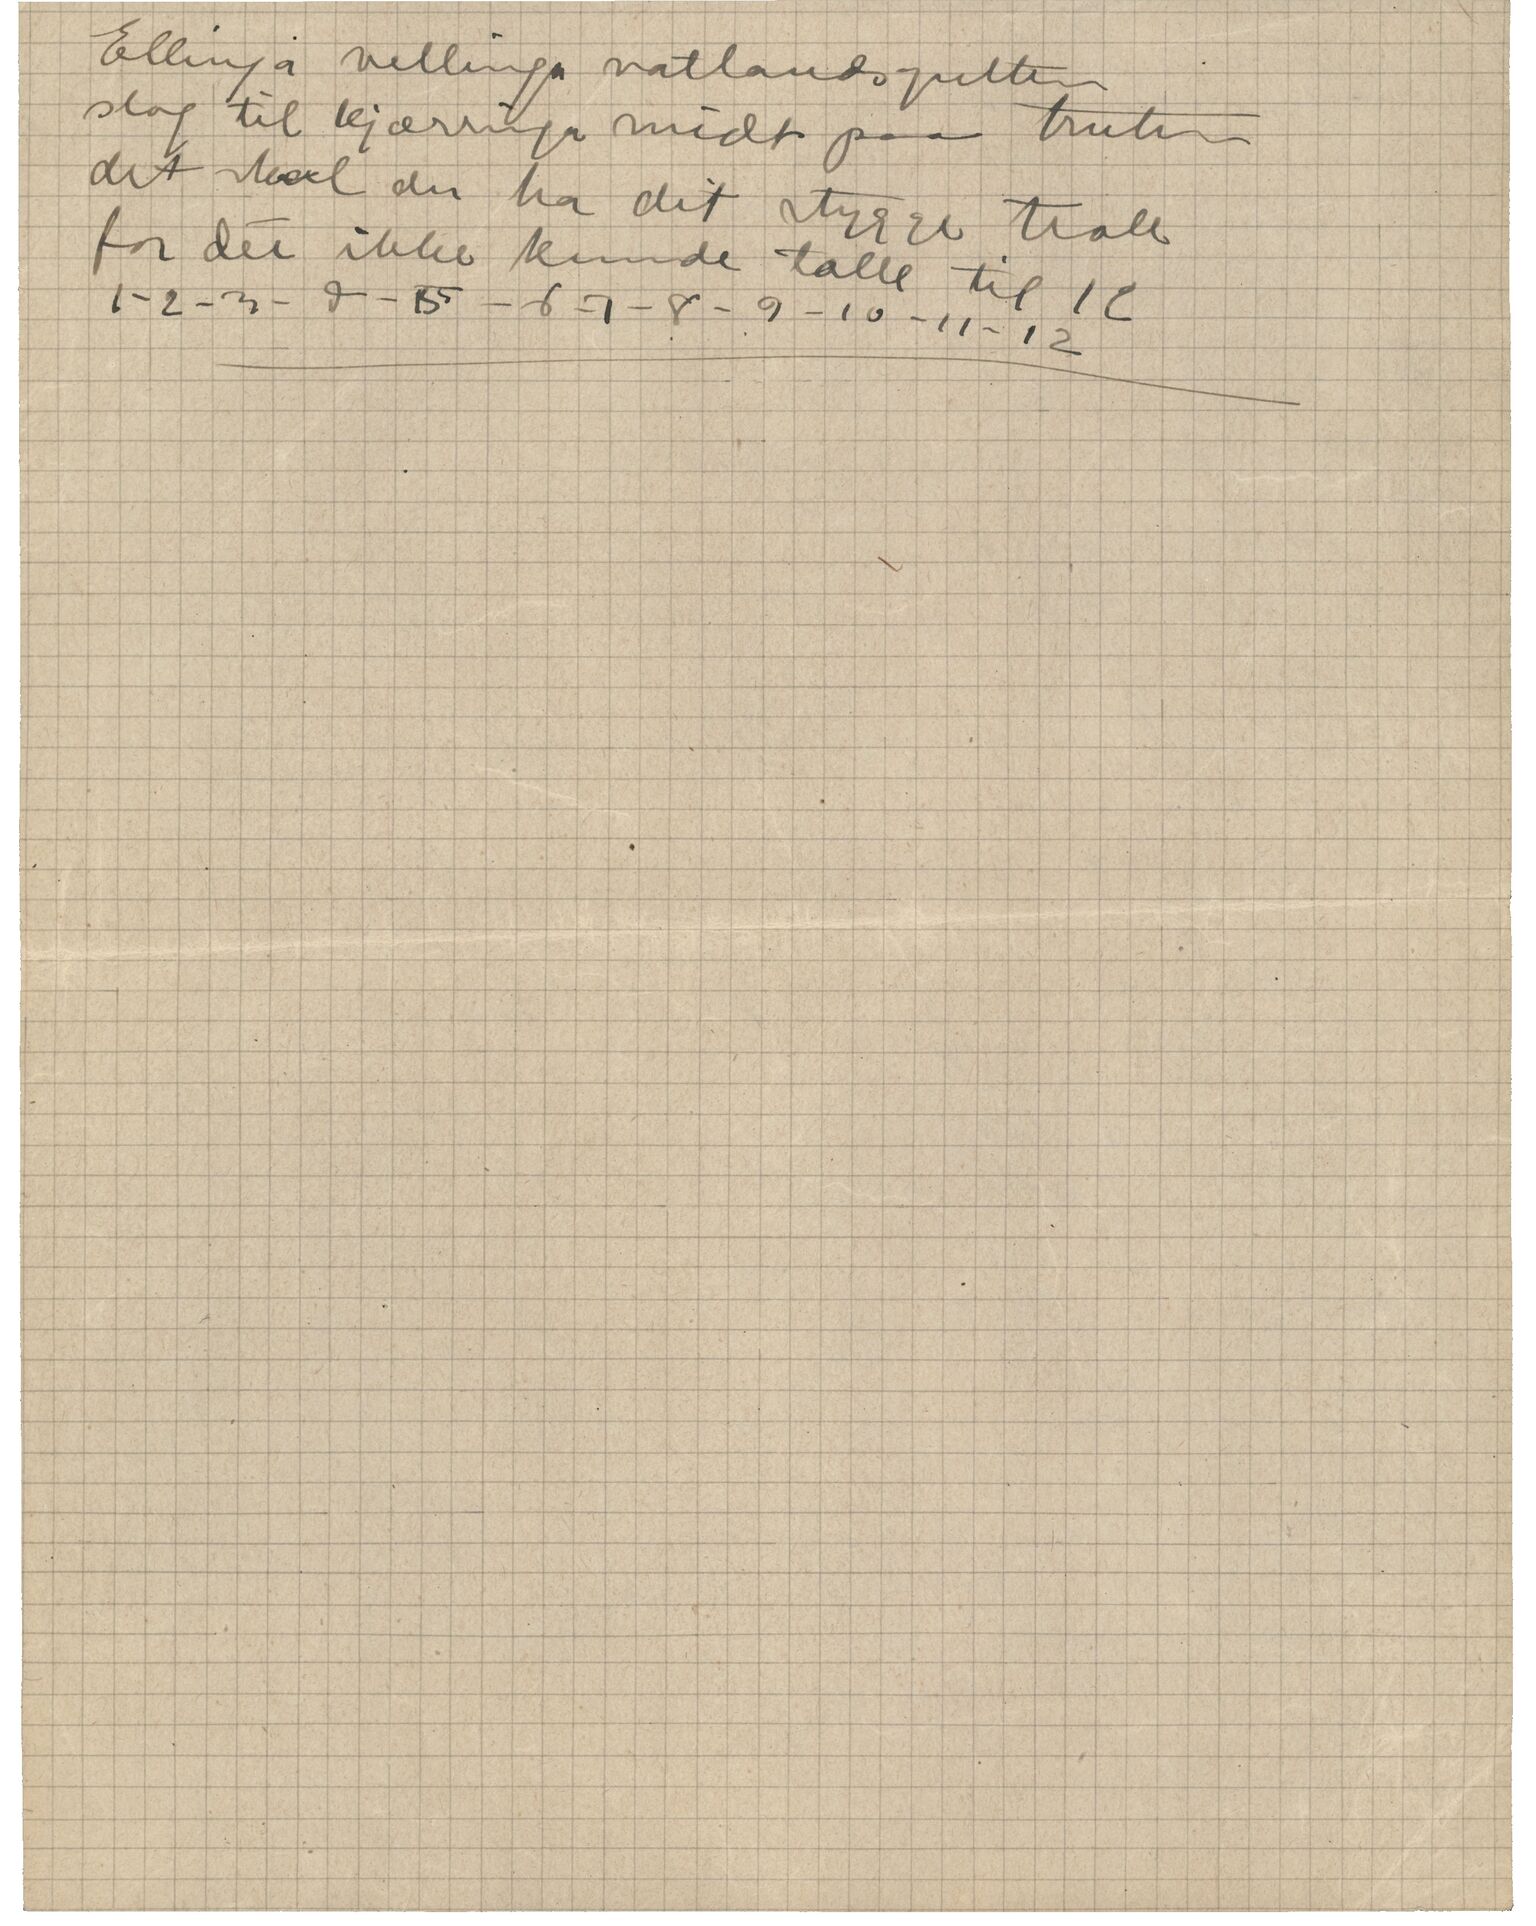 Ellinga vellinga vatlandsgutten
slog til kjærringa midt paa truten
det skal du ha dit stygge troll
for du ikke kunde talle til 12
1-2-3- - 5 - 6-7-8-9-10-11-12